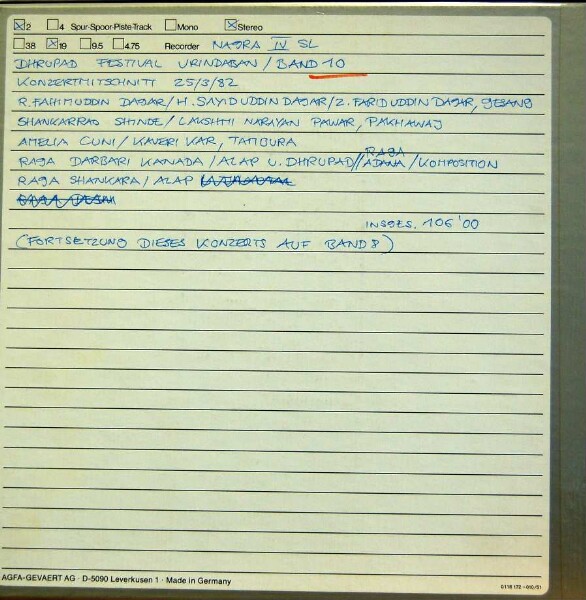 ☒2 ☐4 Spur-Spoor-Piste-Track ☐Mono ☒Stereo
☐38 ☒19 ☐9.5 ☐4.75 Recorder NAGRA IV SL
DHRUPAD FESTIVAL VRINDABAN / BAND 10
KONZERTMITSCHNITT 25/3/82
R. FAHIMUDDIN DAGAR / H. SAYIDUDDIN DAGAR / Z. FARIDUDDIN DAGAR, GESANG
SHANKARRAO SHINDE / LAKSHMI NARAYAN PAWAR, PAKHAWAJ
AMELIA CUNI / KAVERI KAR, TAMBURA
RAGA DARBARI KANADA / ALAP U. DHRUPAD // RAGA ADANA / KOMPOSITION
RAGA SHANKARA / ALAP
INSGES. 106'00
(FORTSETZUNG DIESES KONZERTS AUF BAND 8)
AGFA-GEVAERT AG · D-5090 Leverkusen 1 · Made in Germany